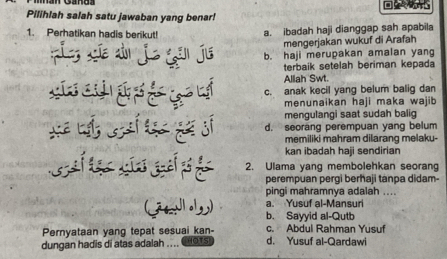 Pilihlah salah satu jawaban yang benar!
1. Perhatikan hadis berikut!
قَالَ النَّبِيُّ صَلَّى اللهُ عَلَيْهِ وَسَلَّمَ:
أَيُّمَا صَبِيٍّ حَجَّ ثُمَّ بَلَغَ الْحِنْثَ فَعَلَيْهِ
أَنْ يَحُجَّ حَجَّةً أُخْرَى وَأَيُّمَا عَبْدٍ
حَجَّ ثُمَّ أُعْتِقَ فَعَلَيْهِ حَجَّةٌ أُخْرَى.
(رواه البيهقي)
Pernyataan yang tepat sesuai kan-
dungan hadis di atas adalah .... HOTS
a. ibadah haji dianggap sah apabila
mengerjakan wukuf di Arafah
b. haji merupakan amalan yang
terbaik setelah beriman kepada
Allah Swt.
c. anak kecil yang belum balig dan
menunaikan haji maka wajib
mengulangi saat sudah balig
d. seorang perempuan yang belum
memiliki mahram dilarang melaku-
kan ibadah haji sendirian
2. Ulama yang membolehkan seorang
perempuan pergi berhaji tanpa didam-
pingi mahramnya adalah ....
a. Yusuf al-Mansuri
b. Sayyid al-Qutb
c. Abdul Rahman Yusuf
d. Yusuf al-Qardawi